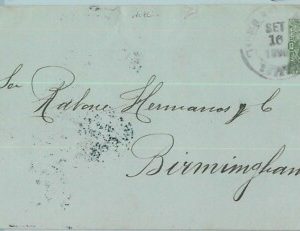 SET
16
Sor Rabone Hermanos y C
Birmingham